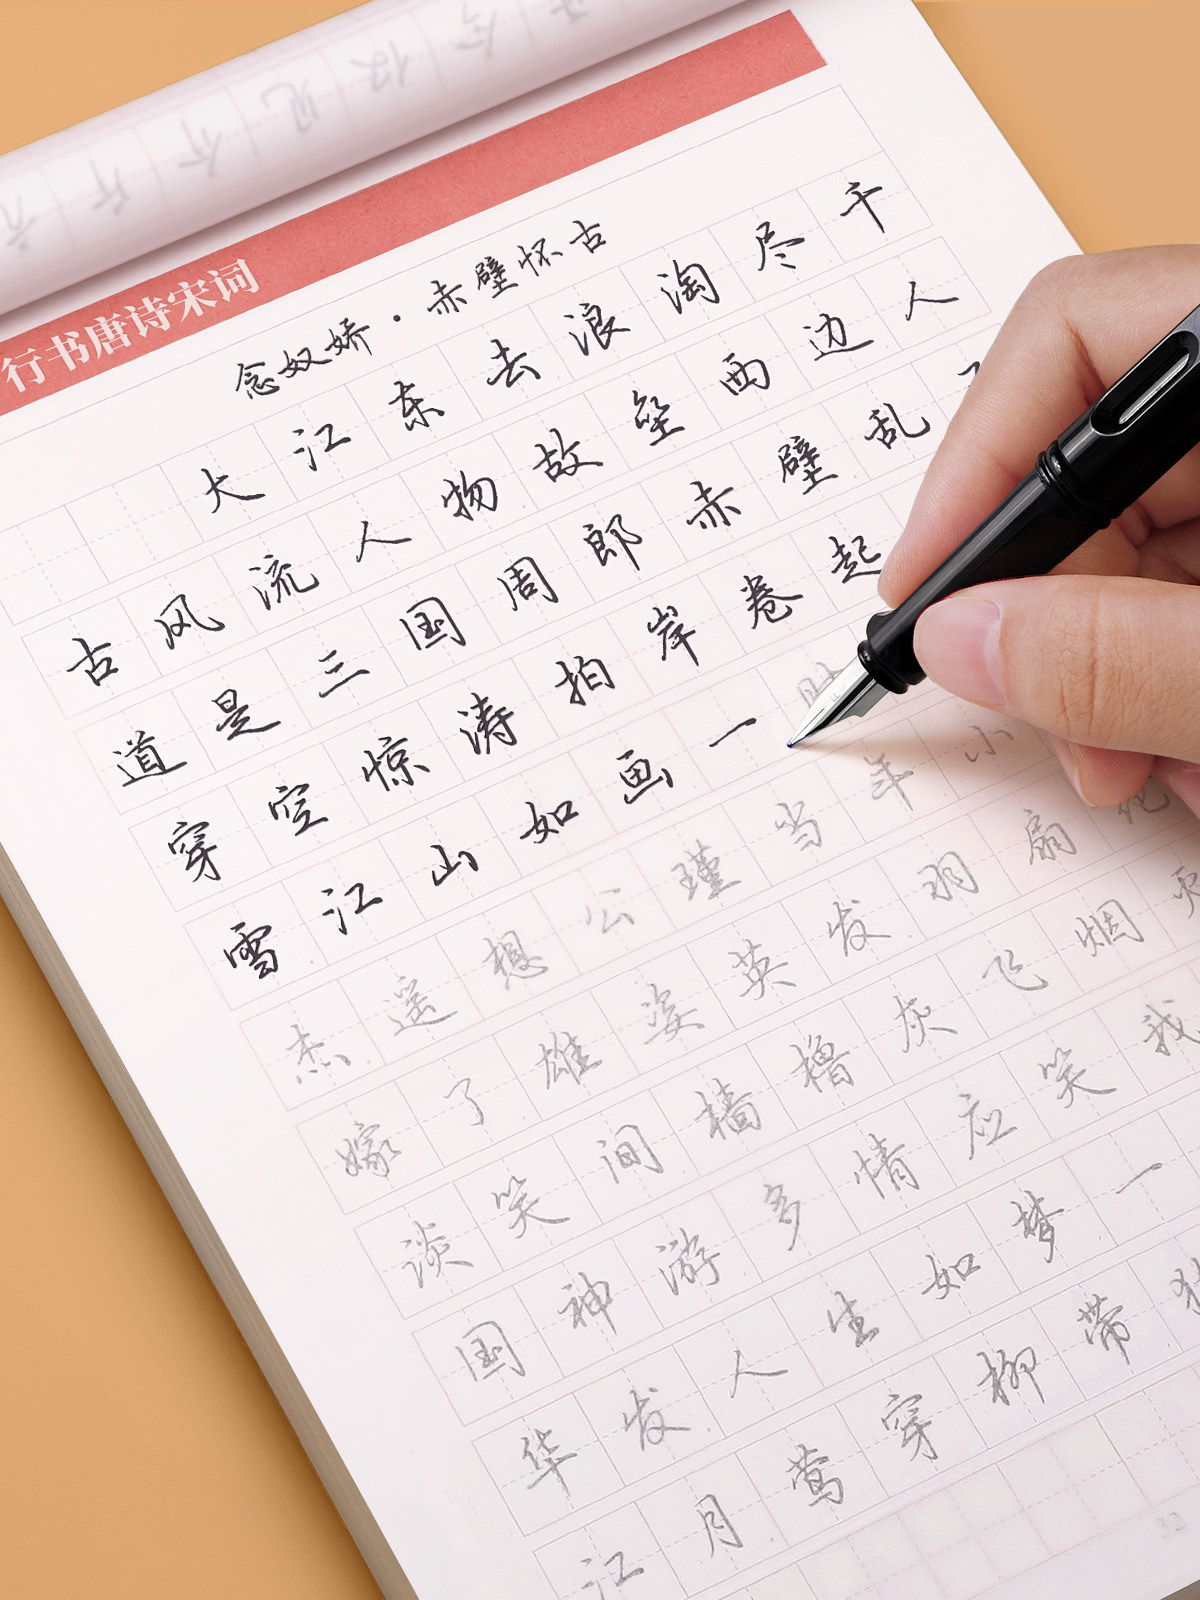 行书唐诗宋词
念奴娇·赤壁怀古
大江东去浪淘尽千
古风流人物故垒西边人
道是三国周郎赤壁乱
穿空惊涛拍岸卷起
雪江山如画一
杰遥想公瑾当年小
嫁了雄姿英发羽扇纶
谈笑间樯橹灰飞烟
国神游多情应笑我
华发人生如梦一
江月莺穿柳带犹
32